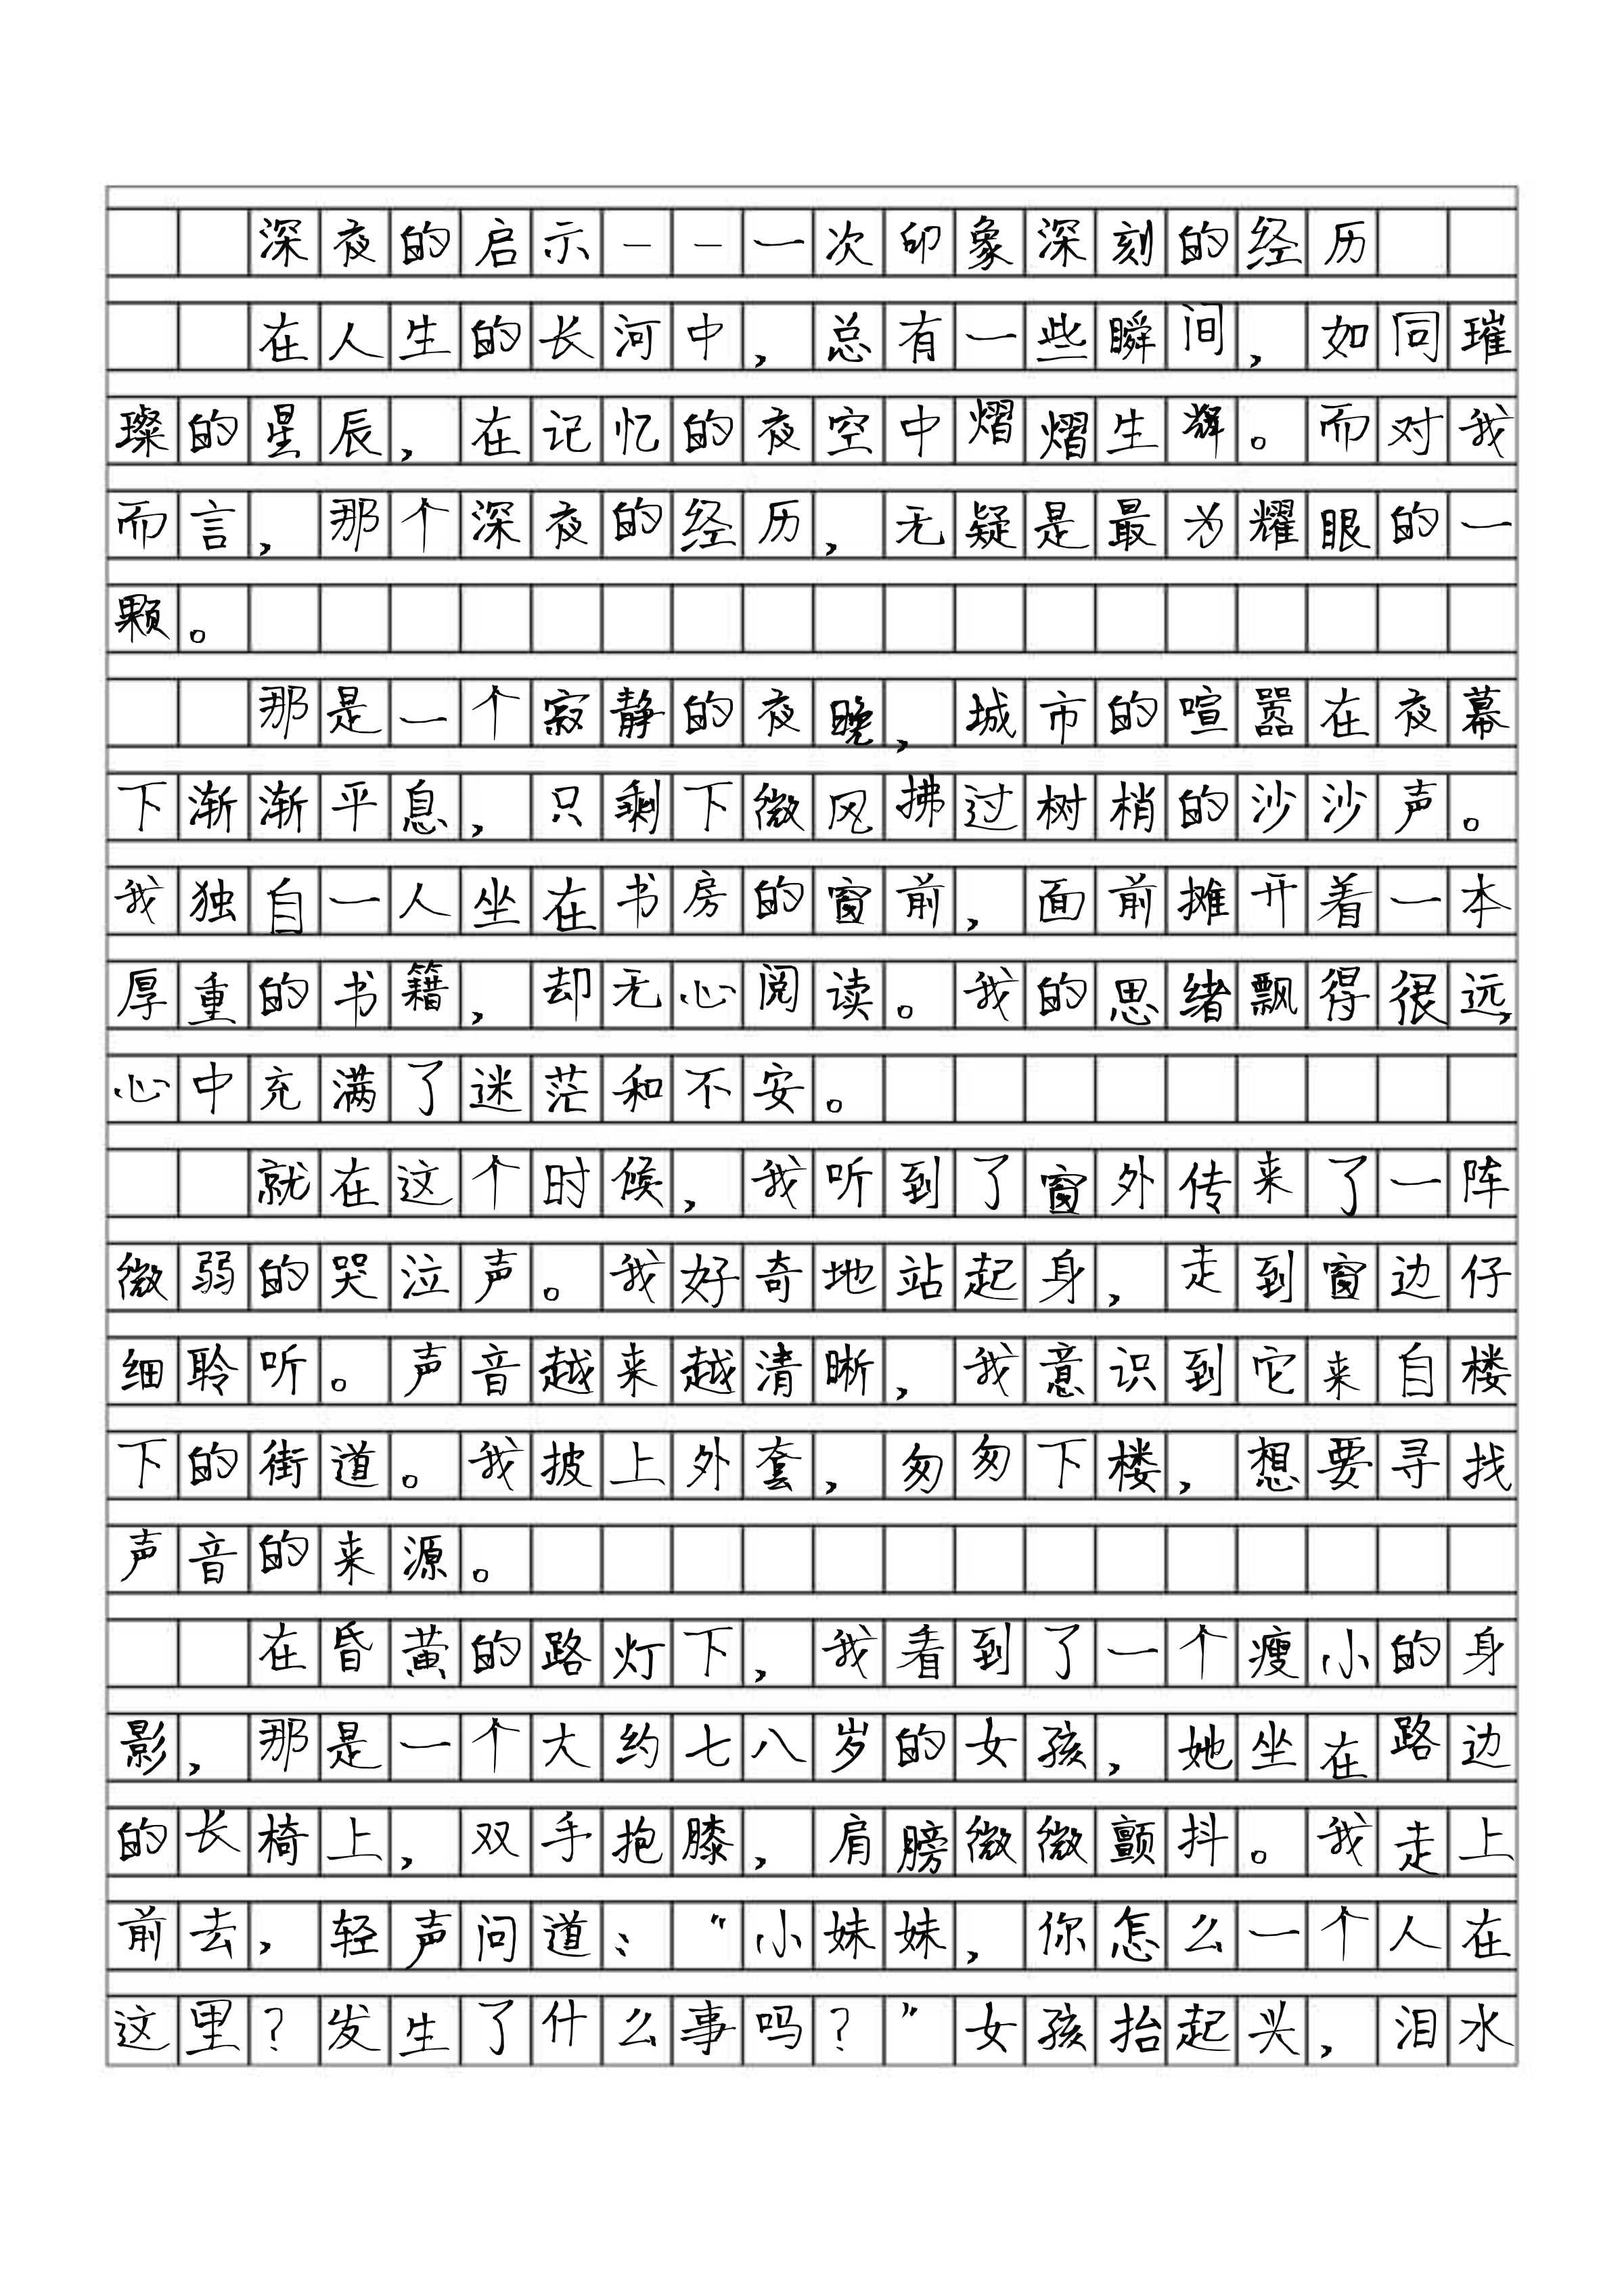 深夜的启示--一次印象深刻的经历
在人生的长河中，总有一些瞬间，如同璀
璨的星辰，在记忆的夜空中熠熠生辉。而对我
而言，那个深夜的经历，无疑是最为耀眼的一
颗。
那是一个寂静的夜晚，城市的喧嚣在夜幕
下渐渐平息，只剩下微风拂过树梢的沙沙声。
我独自一人坐在书房的窗前，面前摊开着一本
厚重的书籍，却无心阅读。我的思绪飘得很远，
心中充满了迷茫和不安。
就在这个时候，我听到了窗外传来了一阵
微弱的哭泣声。我好奇地站起身，走到窗边仔
细聆听。声音越来越清晰，我意识到它来自楼
下的街道。我披上外套，匆匆下楼，想要寻找
声音的来源。
在昏黄的路灯下，我看到了一个瘦小的身
影，那是一个大约七八岁的女孩，她坐在路边
的长椅上，双手抱膝，肩膀微微颤抖。我走上
前去，轻声问道：“小妹妹，你怎么一个人在
这里？发生了什么事吗？”女孩抬起头，泪水